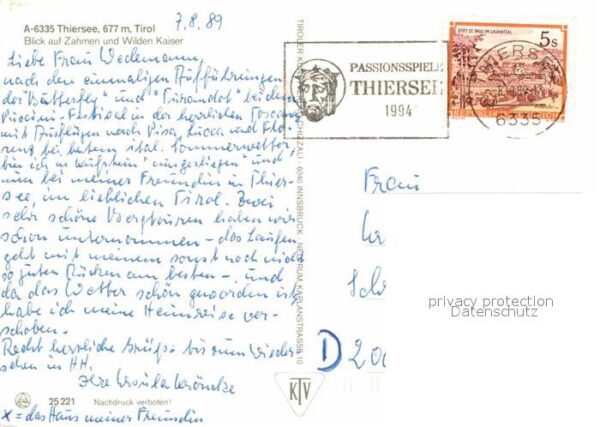 A-6335 Thiersee, 677 m, Tirol
Blick auf Zahmen und Wilden Kaiser
7.8.89
Liebe Frau Wedemann,
nach den einmaligen Aufführungen
der "Butterfly" und "Turandot" bei dem
Puccini-Festival in der herrlichen Toscana
mit Ausflügen nach Pisa, Lucca und Flo-
renz bei bestem ital. Sommerwetter,
bin ich in Kufstein "umgestiegen" und
nun bei meiner Freundin in Thier-
see, im lieblichen Tirol. Zwei
sehr schöne Bergtouren haben wir
schon unternommen - das Laufen
geht mit meinem sonst noch nicht
so guten Rücken am besten - und
da das Wetter schön geworden ist,
habe ich meine Heimreise ver-
schoben.
Recht herzliche Grüße - bis zum Wieder-
sehen in HH.
Ihre Ursula
25 221 Nachdruck verboten!
x = das Haus meiner Freundin
TIROLER 6040 INNSBRUCK KAPLANSTRASSE 10
KTV
PASSIONSSPIELE
THIERSEE
1994
STIFT ST. PAUL IM LAVANTTAL
5s
REPUBLIK
THIERSEE
6335
Frau
D 200
privacy protection
Datenschutz